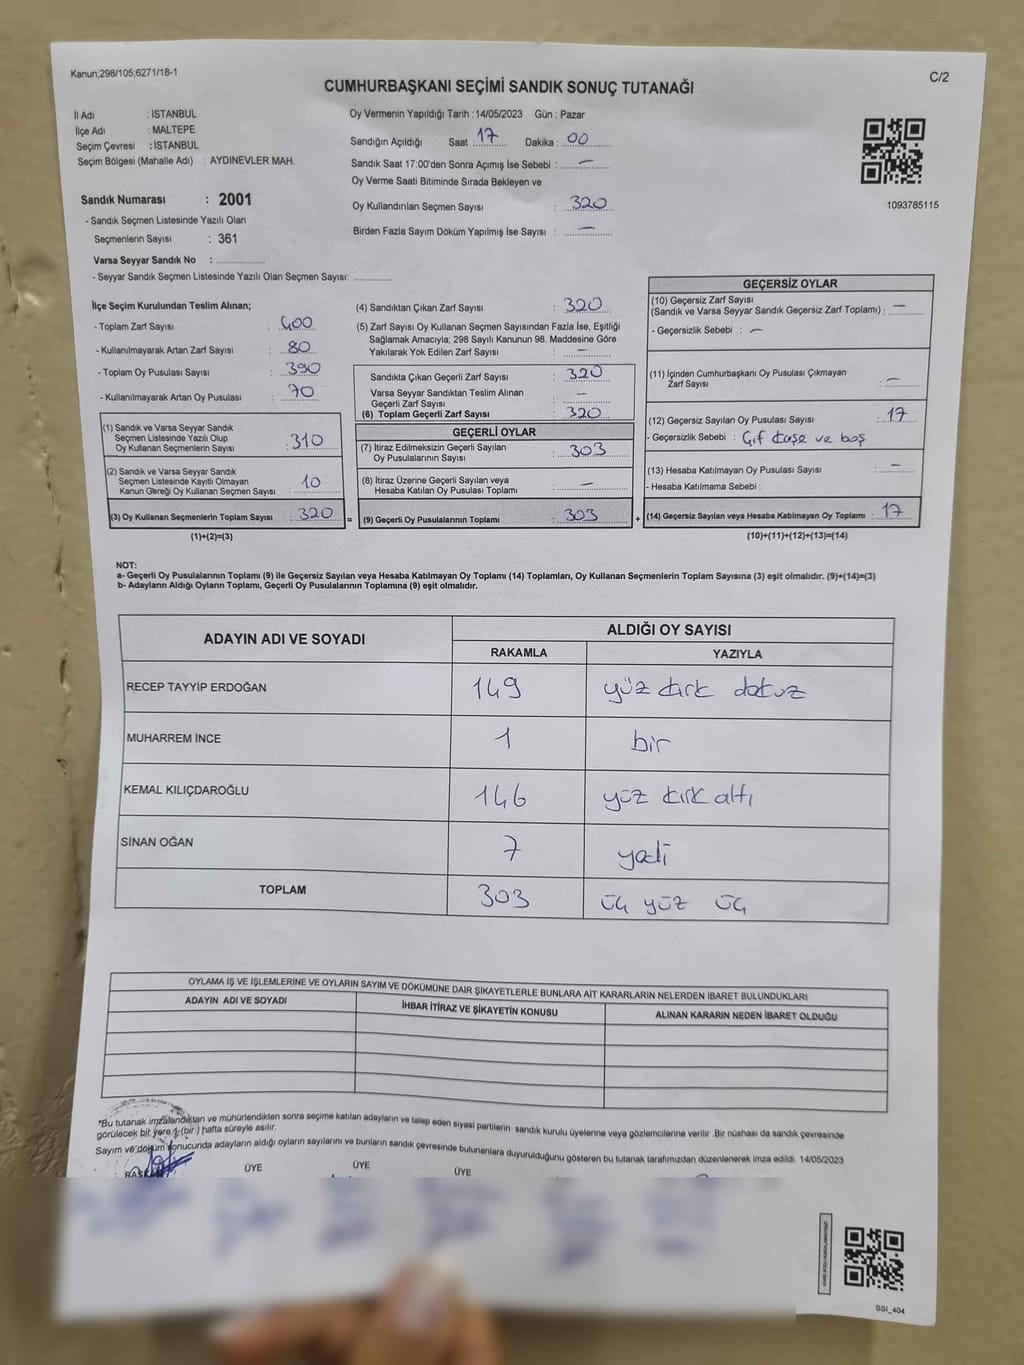 Kanun;298/105;6271/18-1
C/2
CUMHURBAŞKANI SEÇİMİ SANDIK SONUÇ TUTANAĞI
İl Adı : İSTANBUL
İlçe Adı : MALTEPE
Seçim Çevresi : İSTANBUL
Seçim Bölgesi (Mahalle Adı) : AYDINEVLER MAH.
Oy Vermenin Yapıldığı Tarih : 14/05/2023 Gün : Pazar
Sandığın Açıldığı Saat 17 Dakika : 00
Sandık Saat 17:00'den Sonra Açımış İse Sebebi : —
Oy Verme Saati Bitiminde Sırada Bekleyen ve
Oy Kullandırılan Seçmen Sayısı : 320
Birden Fazla Sayım Döküm Yapılmış İse Sayısı : —
1093785115
Sandık Numarası : 2001
- Sandık Seçmen Listesinde Yazılı Olan
Seçmenlerin Sayısı : 361
Varsa Seyyar Sandık No : ..............
- Seyyar Sandık Seçmen Listesinde Yazılı Olan Seçmen Sayısı: ............
İlçe Seçim Kurulundan Teslim Alınan;
- Toplam Zarf Sayısı : 400
- Kullanılmayarak Artan Zarf Sayısı : 80
- Toplam Oy Pusulası Sayısı : 390
- Kullanılmayarak Artan Oy Pusulası : 70
(1) Sandık ve Varsa Seyyar Sandık
Seçmen Listesinde Yazılı Olup
Oy Kullanan Seçmenlerin Sayısı : 310
(2) Sandık ve Varsa Seyyar Sandık
Seçmen Listesinde Kayıtlı Olmayan
Kanun Gereği Oy Kullanan Seçmen Sayısı : 10
(3) Oy Kullanan Seçmenlerin Toplam Sayısı : 320
(1)+(2)=(3)
(4) Sandıktan Çıkan Zarf Sayısı : 320
(5) Zarf Sayısı Oy Kullanan Seçmen Sayısından Fazla İse, Eşitliği
Sağlamak Amacıyla; 298 Sayılı Kanunun 98. Maddesine Göre
Yakılarak Yok Edilen Zarf Sayısı : —
Sandıkta Çıkan Geçerli Zarf Sayısı : 320
Varsa Seyyar Sandıktan Teslim Alınan
Geçerli Zarf Sayısı : —
(6) Toplam Geçerli Zarf Sayısı : 320
GEÇERLİ OYLAR
(7) İtiraz Edilmeksizin Geçerli Sayılan
Oy Pusulalarının Sayısı : 303
(8) İtiraz Üzerine Geçerli Sayılan veya
Hesaba Katılan Oy Pusulası Toplamı : —
= (9) Geçerli Oy Pusulalarının Toplamı : 303
GEÇERSİZ OYLAR
(10) Geçersiz Zarf Sayısı
(Sandık ve Varsa Seyyar Sandık Geçersiz Zarf Toplamı) : —
- Geçersizlik Sebebi : —
(11) İçinden Cumhurbaşkanı Oy Pusulası Çıkmayan
Zarf Sayısı : —
(12) Geçersiz Sayılan Oy Pusulası Sayısı : 17
- Geçersizlik Sebebi : Çif kaşe ve boş
(13) Hesaba Katılmayan Oy Pusulası Sayısı : —
- Hesaba Katılmama Sebebi :
+ (14) Geçersiz Sayılan veya Hesaba Katılmayan Oy Toplamı : 17
(10)+(11)+(12)+(13)=(14)
NOT:
a- Geçerli Oy Pusulalarının Toplamı (9) ile Geçersiz Sayılan veya Hesaba Katılmayan Oy Toplamı (14) Toplamları, Oy Kullanan Seçmenlerin Toplam Sayısına (3) eşit olmalıdır. (9)+(14)=(3)
b- Adayların Aldığı Oyların Toplamı, Geçerli Oy Pusulalarının Toplamına (9) eşit olmalıdır.
ADAYIN ADI VE SOYADI
ALDIĞI OY SAYISI
RAKAMLA YAZIYLA
RECEP TAYYİP ERDOĞAN 149 yüz kırk dokuz
MUHARREM İNCE 1 bir
KEMAL KILIÇDAROĞLU 146 yüz kırk altı
SİNAN OĞAN 7 yedi
TOPLAM 303 üç yüz üç
OYLAMA İŞ VE İŞLEMLERİNE VE OYLARIN SAYIM VE DÖKÜMÜNE DAİR ŞİKAYETLERLE BUNLARA AİT KARARLARIN NELERDEN İBARET BULUNDUKLARI
ADAYIN ADI VE SOYADI İHBAR İTİRAZ VE ŞİKAYETİN KONUSU ALINAN KARARIN NEDEN İBARET OLDUĞU
*Bu tutanak imzalandıktan ve mühürlendikten sonra seçime katılan adayların ve talep eden siyasi partilerin sandık kurulu üyelerine veya gözlemcilerine verilir .Bir nüshası da sandık çevresinde
görülecek bir yere 1 (bir ) hafta süreyle asılır.
Sayım ve döküm sonucunda adayların aldığı oyların sayılarını ve bunların sandık çevresinde bulunanlara duyurulduğunu gösteren bu tutanak tarafımızdan düzenlenerek imza edildi. 14/05/2023
BAŞKAN ÜYE ÜYE ÜYE
SSI_404